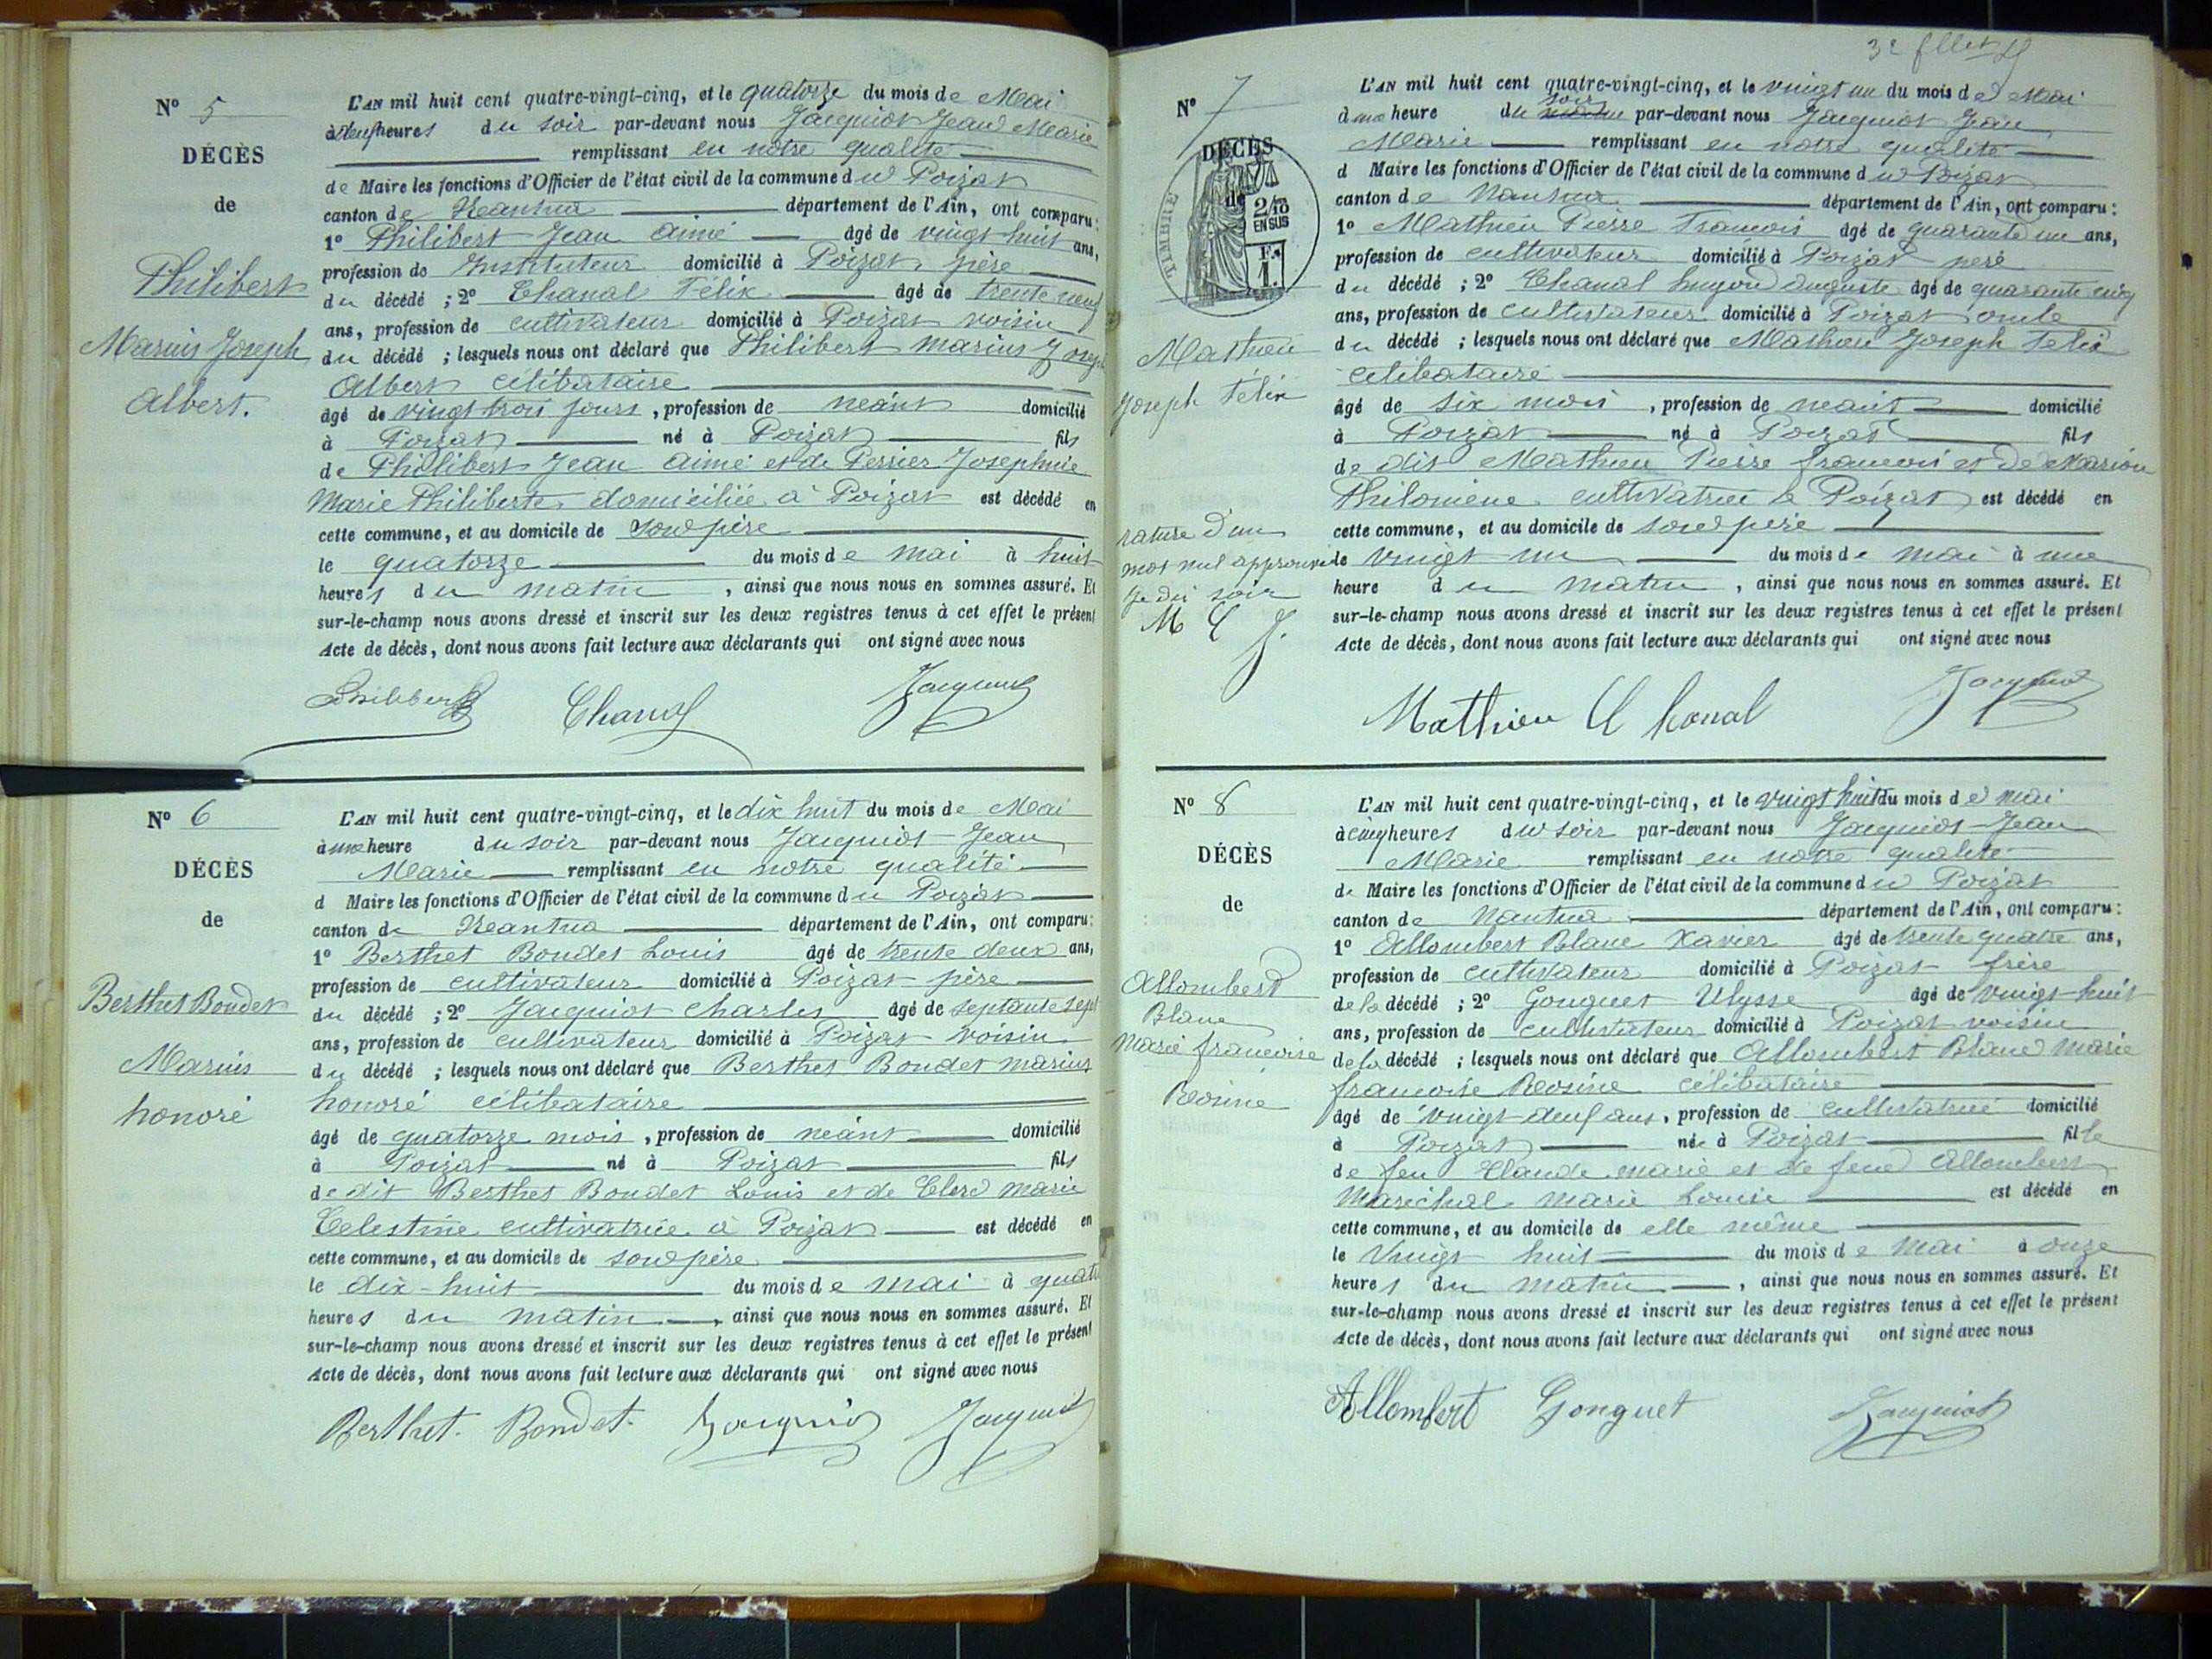 N° 5
DÉCÈS
de
Philibert
Marius Joseph
Albert.
L'AN mil huit cent quatre-vingt-cinq, et le quatorze du mois de Mai
à heures du soir par-devant nous Jacquiot Jean Marie
remplissant en notre qualité
de Maire les fonctions d'Officier de l'état civil de la commune du Poizat
canton de Nantua département de l'Ain, ont comparu:
1° Philibert Jean Aimé âgé de vingt huit ans,
profession de Instituteur domicilié à Poizat père
du décédé ; 2° Chanal Félix âgé de trente neuf
ans, profession de cultivateur domicilié à Poizat voisin
du décédé ; lesquels nous ont déclaré que Philibert Marius Joseph
Albert célibataire
âgé de vingt trois jours, profession de néant domicilié
à Poizat né à Poizat fils
de Philibert Jean Aimé et de Perrier Josephine
Marie Philiberte domiciliée à Poizat est décédé en
cette commune, et au domicile de son père
le quatorze du mois de mai à huit
heures du matin, ainsi que nous nous en sommes assuré. Et
sur-le-champ nous avons dressé et inscrit sur les deux registres tenus à cet effet le présent
Acte de décès, dont nous avons fait lecture aux déclarants qui ont signé avec nous
Philibert Chanal Jacquiot
N° 6
DÉCÈS
de
Berthet Bondet
Marius
honoré
L'AN mil huit cent quatre-vingt-cinq, et le dix huit du mois de Mai
à une heure du soir par-devant nous Jacquiot Jean
Marie remplissant en notre qualité
d Maire les fonctions d'Officier de l'état civil de la commune du Poizat
canton de Nantua département de l'Ain, ont comparu:
1° Berthet Bondet Louis âgé de trente deux ans,
profession de cultivateur domicilié à Poizat père
du décédé ; 2° Jacquiot Charles âgé de septante sept
ans, profession de cultivateur domicilié à Poizat voisin
du décédé ; lesquels nous ont déclaré que Berthet Bondet marius
honoré célibataire
âgé de quatorze mois, profession de néant domicilié
à Poizat né à Poizat fils
de dit Berthet Bondet Louis et de Clerc Marie
Celestine cultivatrice à Poizat est décédé en
cette commune, et au domicile de son père
le dix-huit du mois de mai à quatre
heures du matin, ainsi que nous nous en sommes assuré. Et
sur-le-champ nous avons dressé et inscrit sur les deux registres tenus à cet effet le présent
Acte de décès, dont nous avons fait lecture aux déclarants qui ont signé avec nous
Berthet. Bondet. Jacquiot Jacquiot
N° 7
DÉCÈS
de
TIMBRE
2/10
EN SUS
1 F.
Mathieu
Joseph Félix
rature d'un
mot nul approuvé
du soir
M C J.
L'AN mil huit cent quatre-vingt-cinq, et le vingt un du mois de Mai
à une heure du soir par-devant nous Jacquiot Jean
Marie remplissant en notre qualité
d Maire les fonctions d'Officier de l'état civil de la commune du Poizat
canton de Nantua département de l'Ain, ont comparu:
1° Mathieu Pierre François âgé de quarante un ans,
profession de cultivateur domicilié à Poizat père
du décédé ; 2° Chanal Auguste âgé de quarante cinq
ans, profession de cultivateur domicilié à Poizat oncle
du décédé ; lesquels nous ont déclaré que Mathieu Joseph Félix
célibataire
âgé de six mois, profession de néant domicilié
à Poizat né à Poizat fils
de dit Mathieu Pierre françois et de Marion
Philomène cultivatrice à Poizat est décédé en
cette commune, et au domicile de son père
le vingt un du mois de mai à une
heure du matin, ainsi que nous nous en sommes assuré. Et
sur-le-champ nous avons dressé et inscrit sur les deux registres tenus à cet effet le présent
Acte de décès, dont nous avons fait lecture aux déclarants qui ont signé avec nous
Mathieu Chanal Jacquiot
N° 8
DÉCÈS
de
Allombert
Blanc
Marie francoise
Rosine
L'AN mil huit cent quatre-vingt-cinq, et le vingt huit du mois de mai
à cinq heures du soir par-devant nous Jacquiot Jean
Marie remplissant en notre qualité
de Maire les fonctions d'Officier de l'état civil de la commune du Poizat
canton de Nantua département de l'Ain, ont comparu:
1° Allombert Blanc Xavier âgé de trente quatre ans,
profession de cultivateur domicilié à Poizat frère
de la décédé ; 2° Gonguet Ulysse âgé de vingt-huit
ans, profession de cultivateur domicilié à Poizat voisin
de la décédé ; lesquels nous ont déclaré que Allombert Blanc Marie
francoise Rosine célibataire
âgé de vingt-neuf ans, profession de cultivatrice domicilié
à Poizat née à Poizat fille
de feu Claude marie et de feue Allombert
Maréchal marie Louise est décédé en
cette commune, et au domicile de elle même
le vingt huit du mois de Mai à onze
heures du matin, ainsi que nous nous en sommes assuré. Et
sur-le-champ nous avons dressé et inscrit sur les deux registres tenus à cet effet le présent
Acte de décès, dont nous avons fait lecture aux déclarants qui ont signé avec nous
Allombert Gonguet Jacquiot